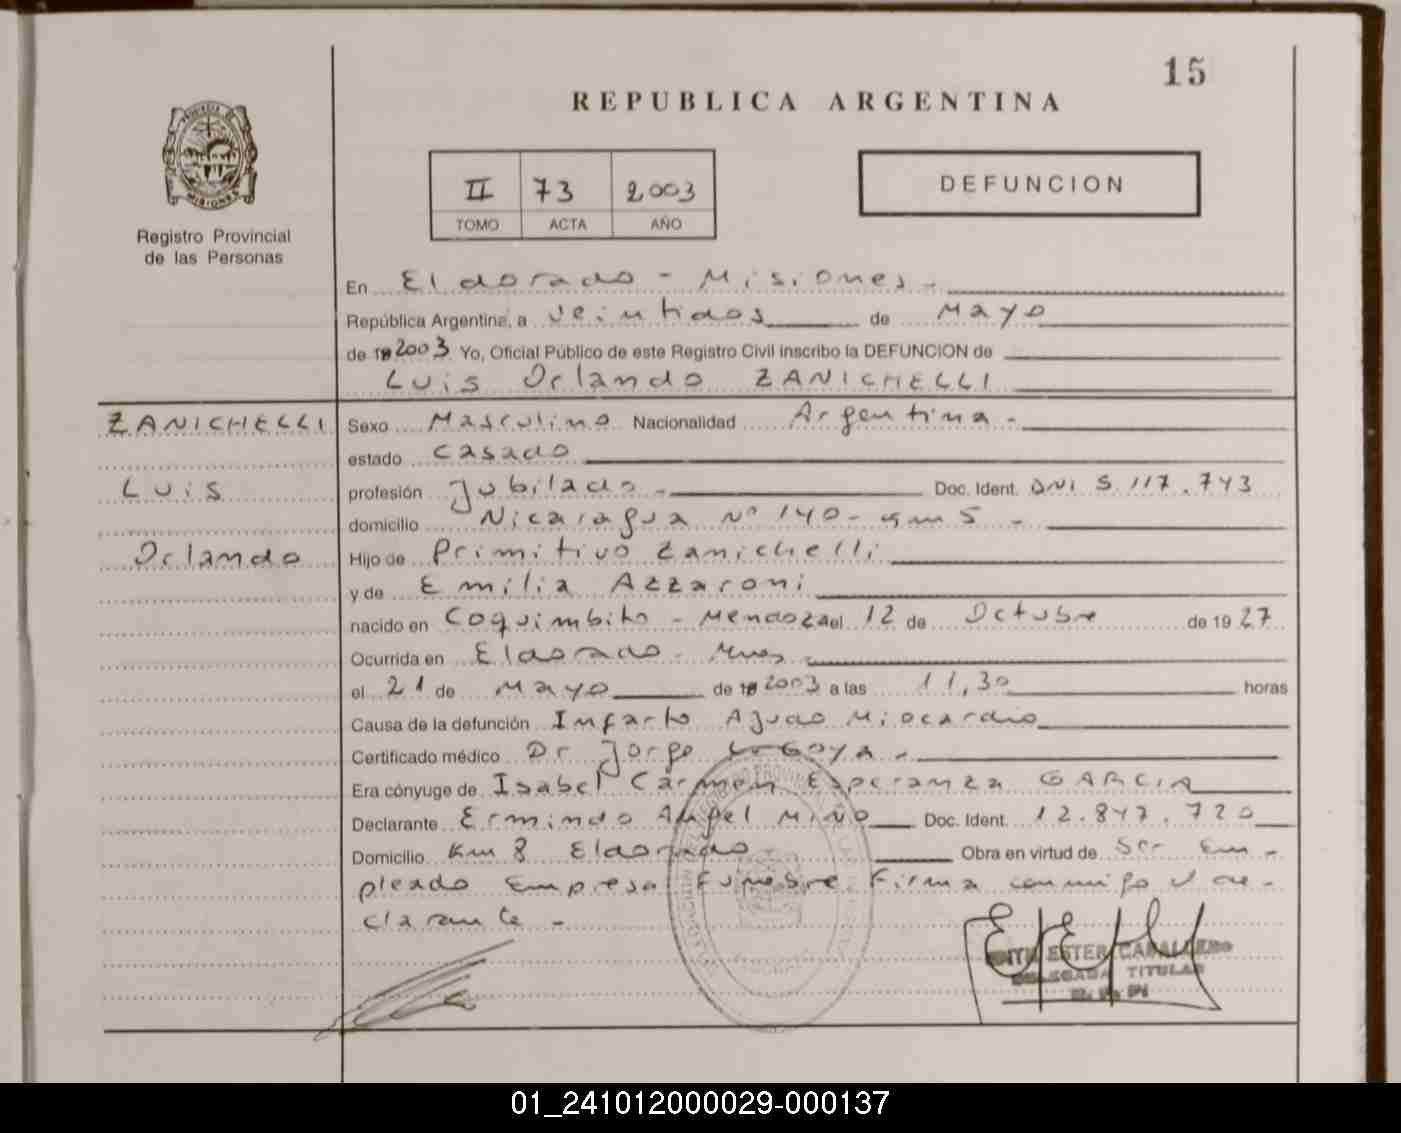 15
REPUBLICA ARGENTINA
II 73 2003
TOMO ACTA AÑO
DEFUNCION
MISIONES
Registro Provincial
de las Personas
En Eldorado - Misiones -
República Argentina, a veintidos de Mayo
de 2003 Yo, Oficial Público de este Registro Civil inscribo la DEFUNCION de
Luis Orlando ZANICHELLI
ZANICHELLI
Luis
Orlando
Sexo Masculino Nacionalidad Argentina -
estado casado
profesión Jubilado - Doc. Ident. DNI 5.117.743
domicilio Nicaragua Nº 140 - Km 5 -
Hijo de Primitivo Zanichelli
y de Emilia Azzaroni
nacido en Coquimbito - Mendoza el 12 de Octubre de 1927
Ocurrida en Eldorado - Mnes -
el 21 de Mayo de 2003 a las 11,30 horas
Causa de la defunción Infarto Agudo Miocardio
Certificado médico Dr Jorge GOYA -
Era cónyuge de Isabel Carmen Esperanza GARCIA
Declarante Ermindo Angel MIÑO Doc. Ident. 12.847.720
Domicilio Km 8 Eldorado Obra en virtud de Ser Em-
pleado Empresa Funebre Firma conmigo el de-
clarante -
EDITH ESTER CABALLERO
DELEGADA TITULAR
01_241012000029-000137